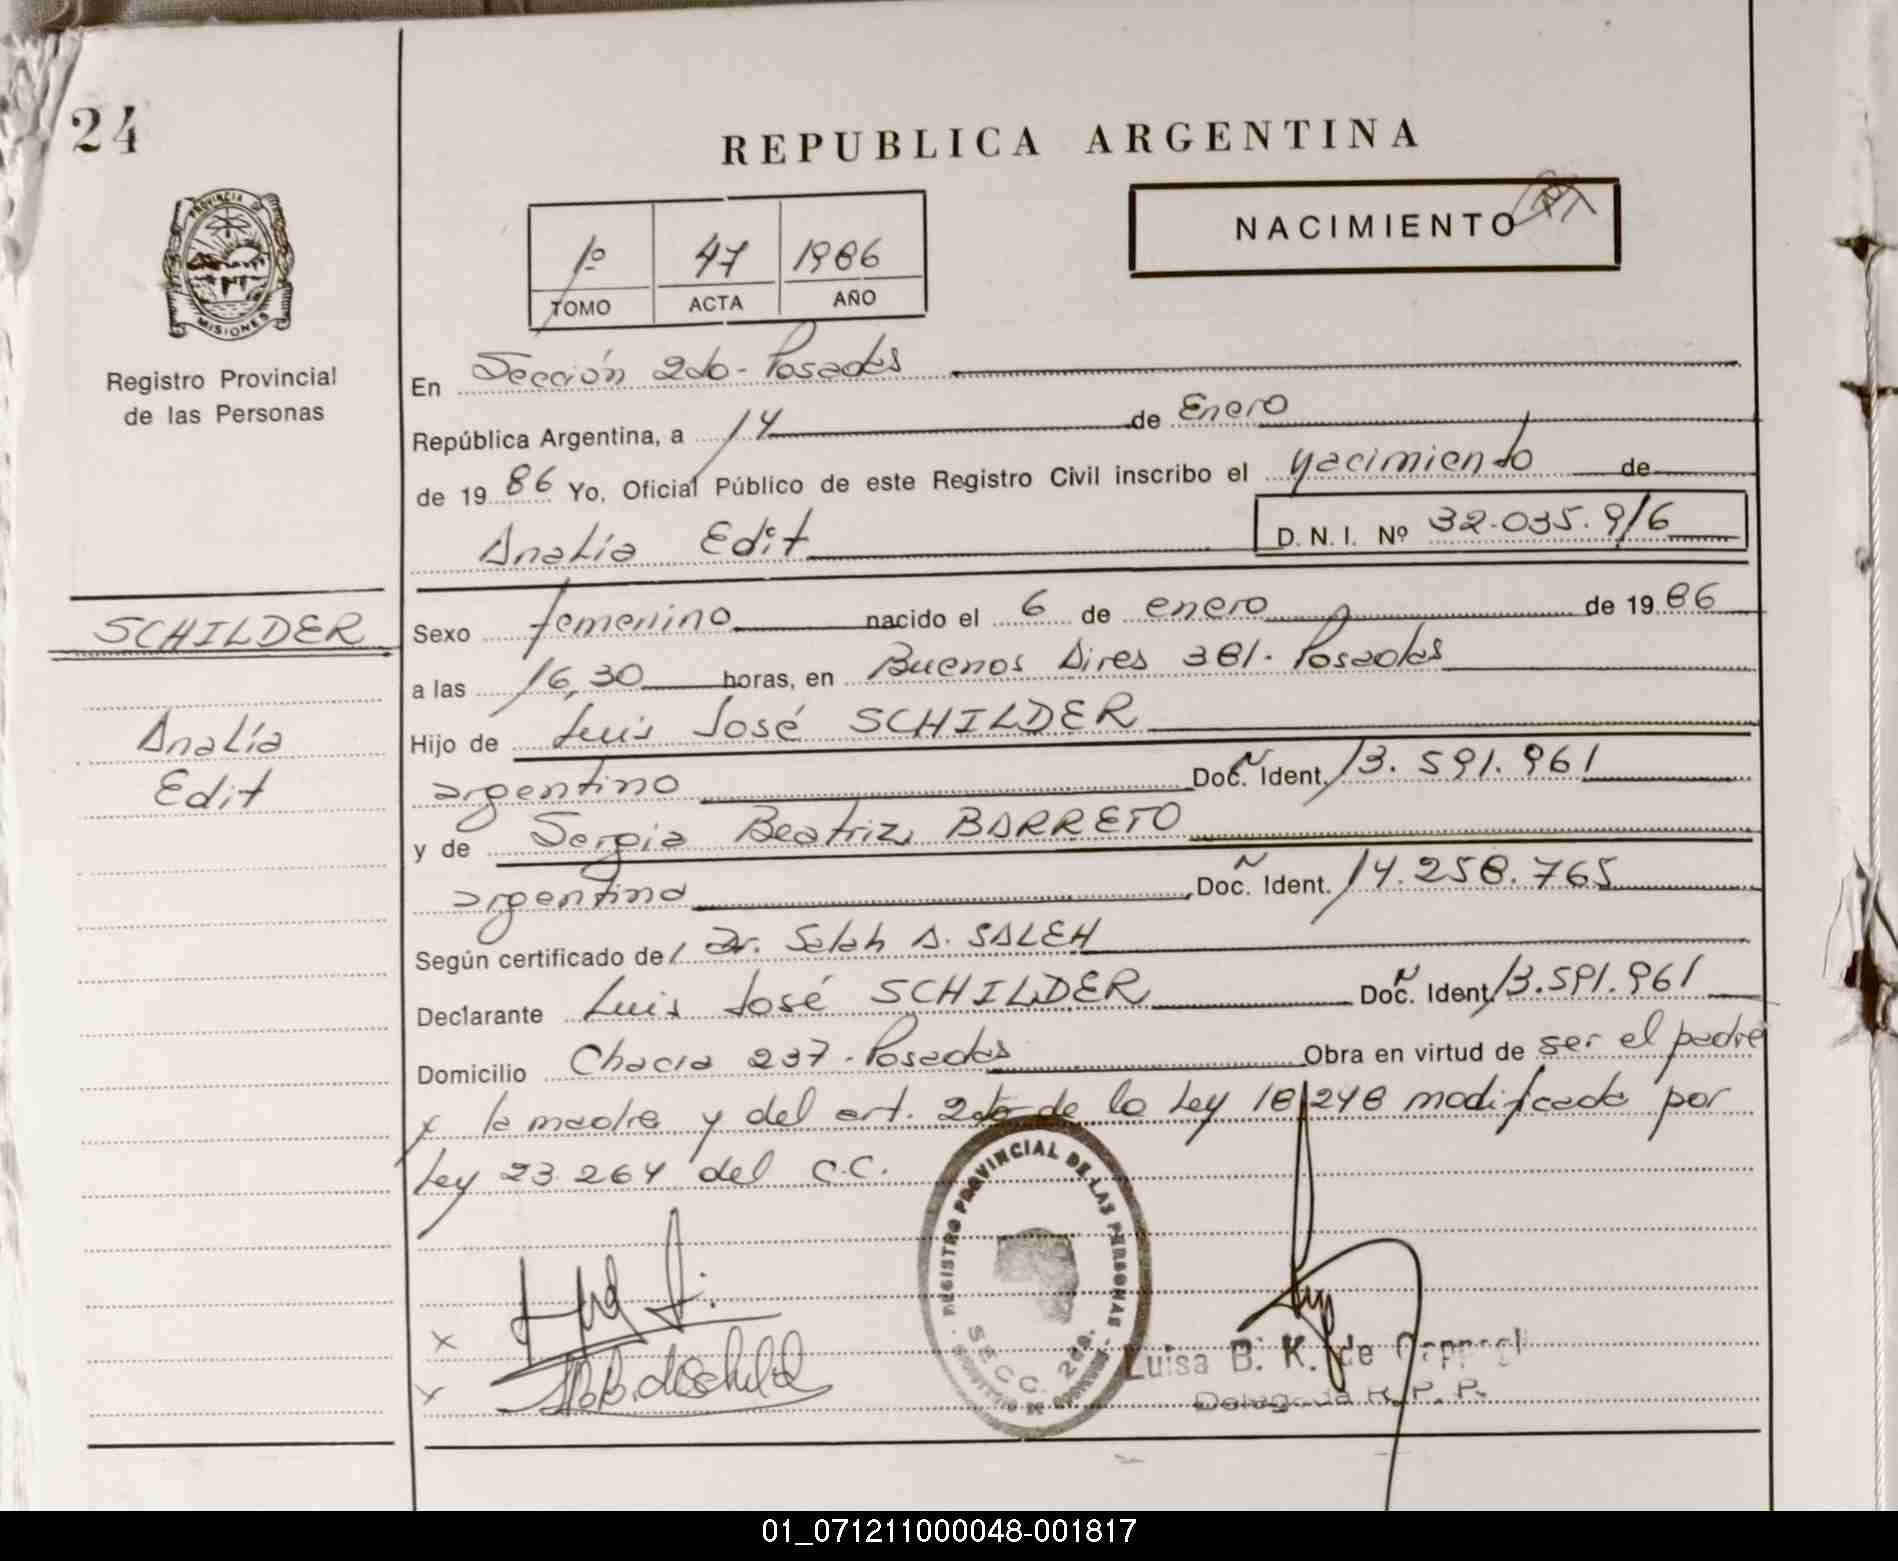 24
REPUBLICA ARGENTINA
PROVINCIA
MISIONES
Registro Provincial
de las Personas
1º 47 1986
TOMO ACTA AÑO
NACIMIENTO
En Sección 2do- Posadas
República Argentina, a 14 de Enero
de 1986 Yo, Oficial Público de este Registro Civil inscribo el nacimiento de
Analía Edit D. N. I. Nº 32.035.916
SCHILDER
Analía
Edit
Sexo femenino nacido el 6 de enero de 1986
a las 16,30 horas, en Buenos Aires 381- Posadas
Hijo de Luis José SCHILDER
argentino Doc. Ident. 13.591.961
y de Sergia Beatriz BARRETO
argentina Doc. Ident. 14.258.765
Según certificado de Dr. Salah A. SALEH
Declarante Luis José SCHILDER Doc. Ident. 13.591.961
Domicilio Chacra 237- Posadas Obra en virtud de ser el padre
y la madre y del art. 2do de la Ley 18.248 modificada por
Ley 23.264 del C.C.
REGISTRO PROVINCIAL DE LAS PERSONAS
SECC. 2da.
x
x
Luisa B. K. de
Delegada R. P. P.
01_071211000048-001817